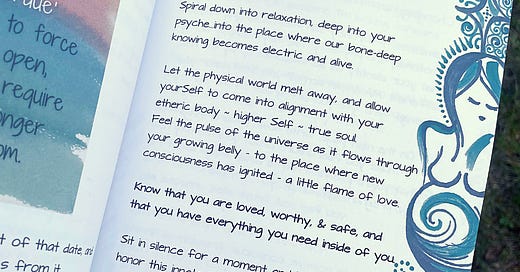 rude
to force
open,
require
onger
om.
t of that date, and
s from it
Spiral down into relaxation, deep into your
psyche...into the place where our bone-deep
knowing becomes electric and alive.
Let the physical world melt away, and allow
yourSelf to come into alignment with your
etheric body ~ higher Self ~ true soul.
Feel the pulse of the universe as it flows through
your growing belly - to the place where new
consciousness has ignited - a little flame of love.
Know that you are loved, worthy, & safe, and
that you have everything you need inside of you.
Sit in silence for a moment
honor this